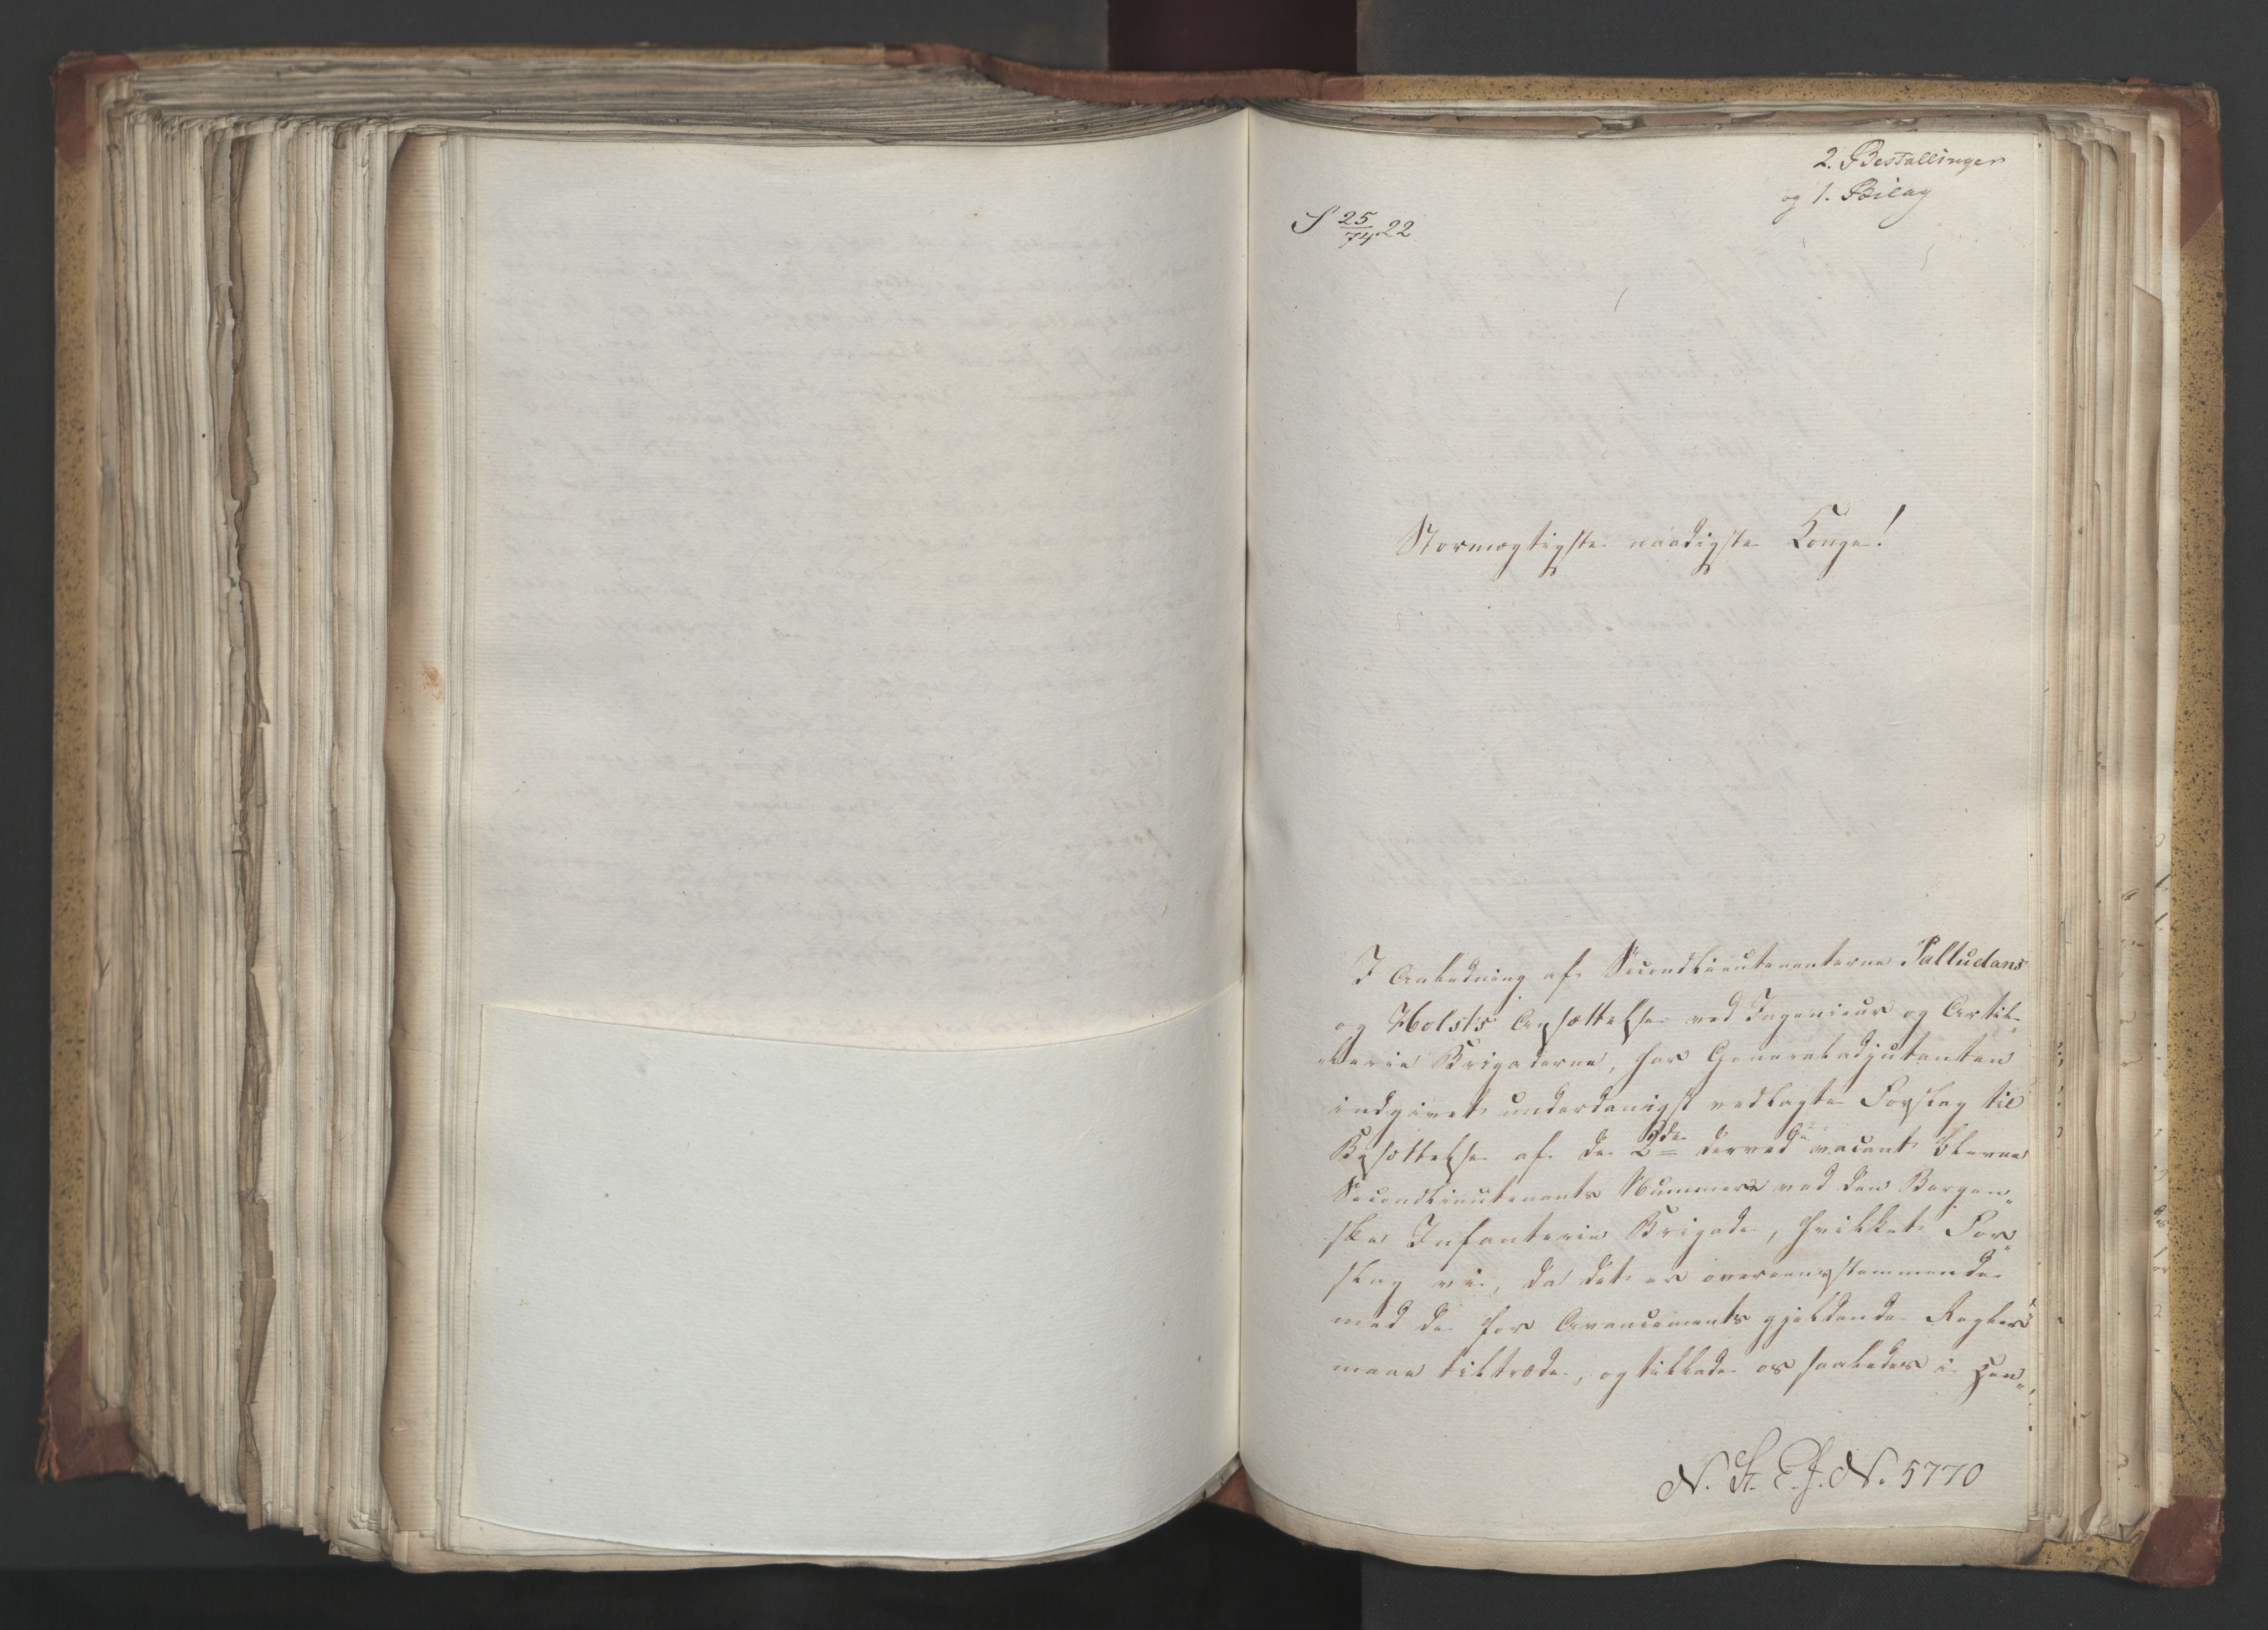 2. Bestallinger
og 1. Bilag
S 25/74 22
Stormægtigste naadigste Konge!
I Anledning af Secondlieutenanterne Palludans
og Holsts Ansættelse ved Ingenieur og Artil-
lerie Brigaderne, har Generaladjutanten
indgivet underdanigst vedlagte Forslag til
Besættelse af de 2de derved vacant blevne
Secondlieutenants Nummere ved den Bergen-
ske Infanterie Brigade, hvilket For-
slag vi, da det er overeensstemmende
med de for Avancements gjeldende Regler
maae tiltræde, og tillade os saaledes i Hen-
N. St. E. J. N. 5770